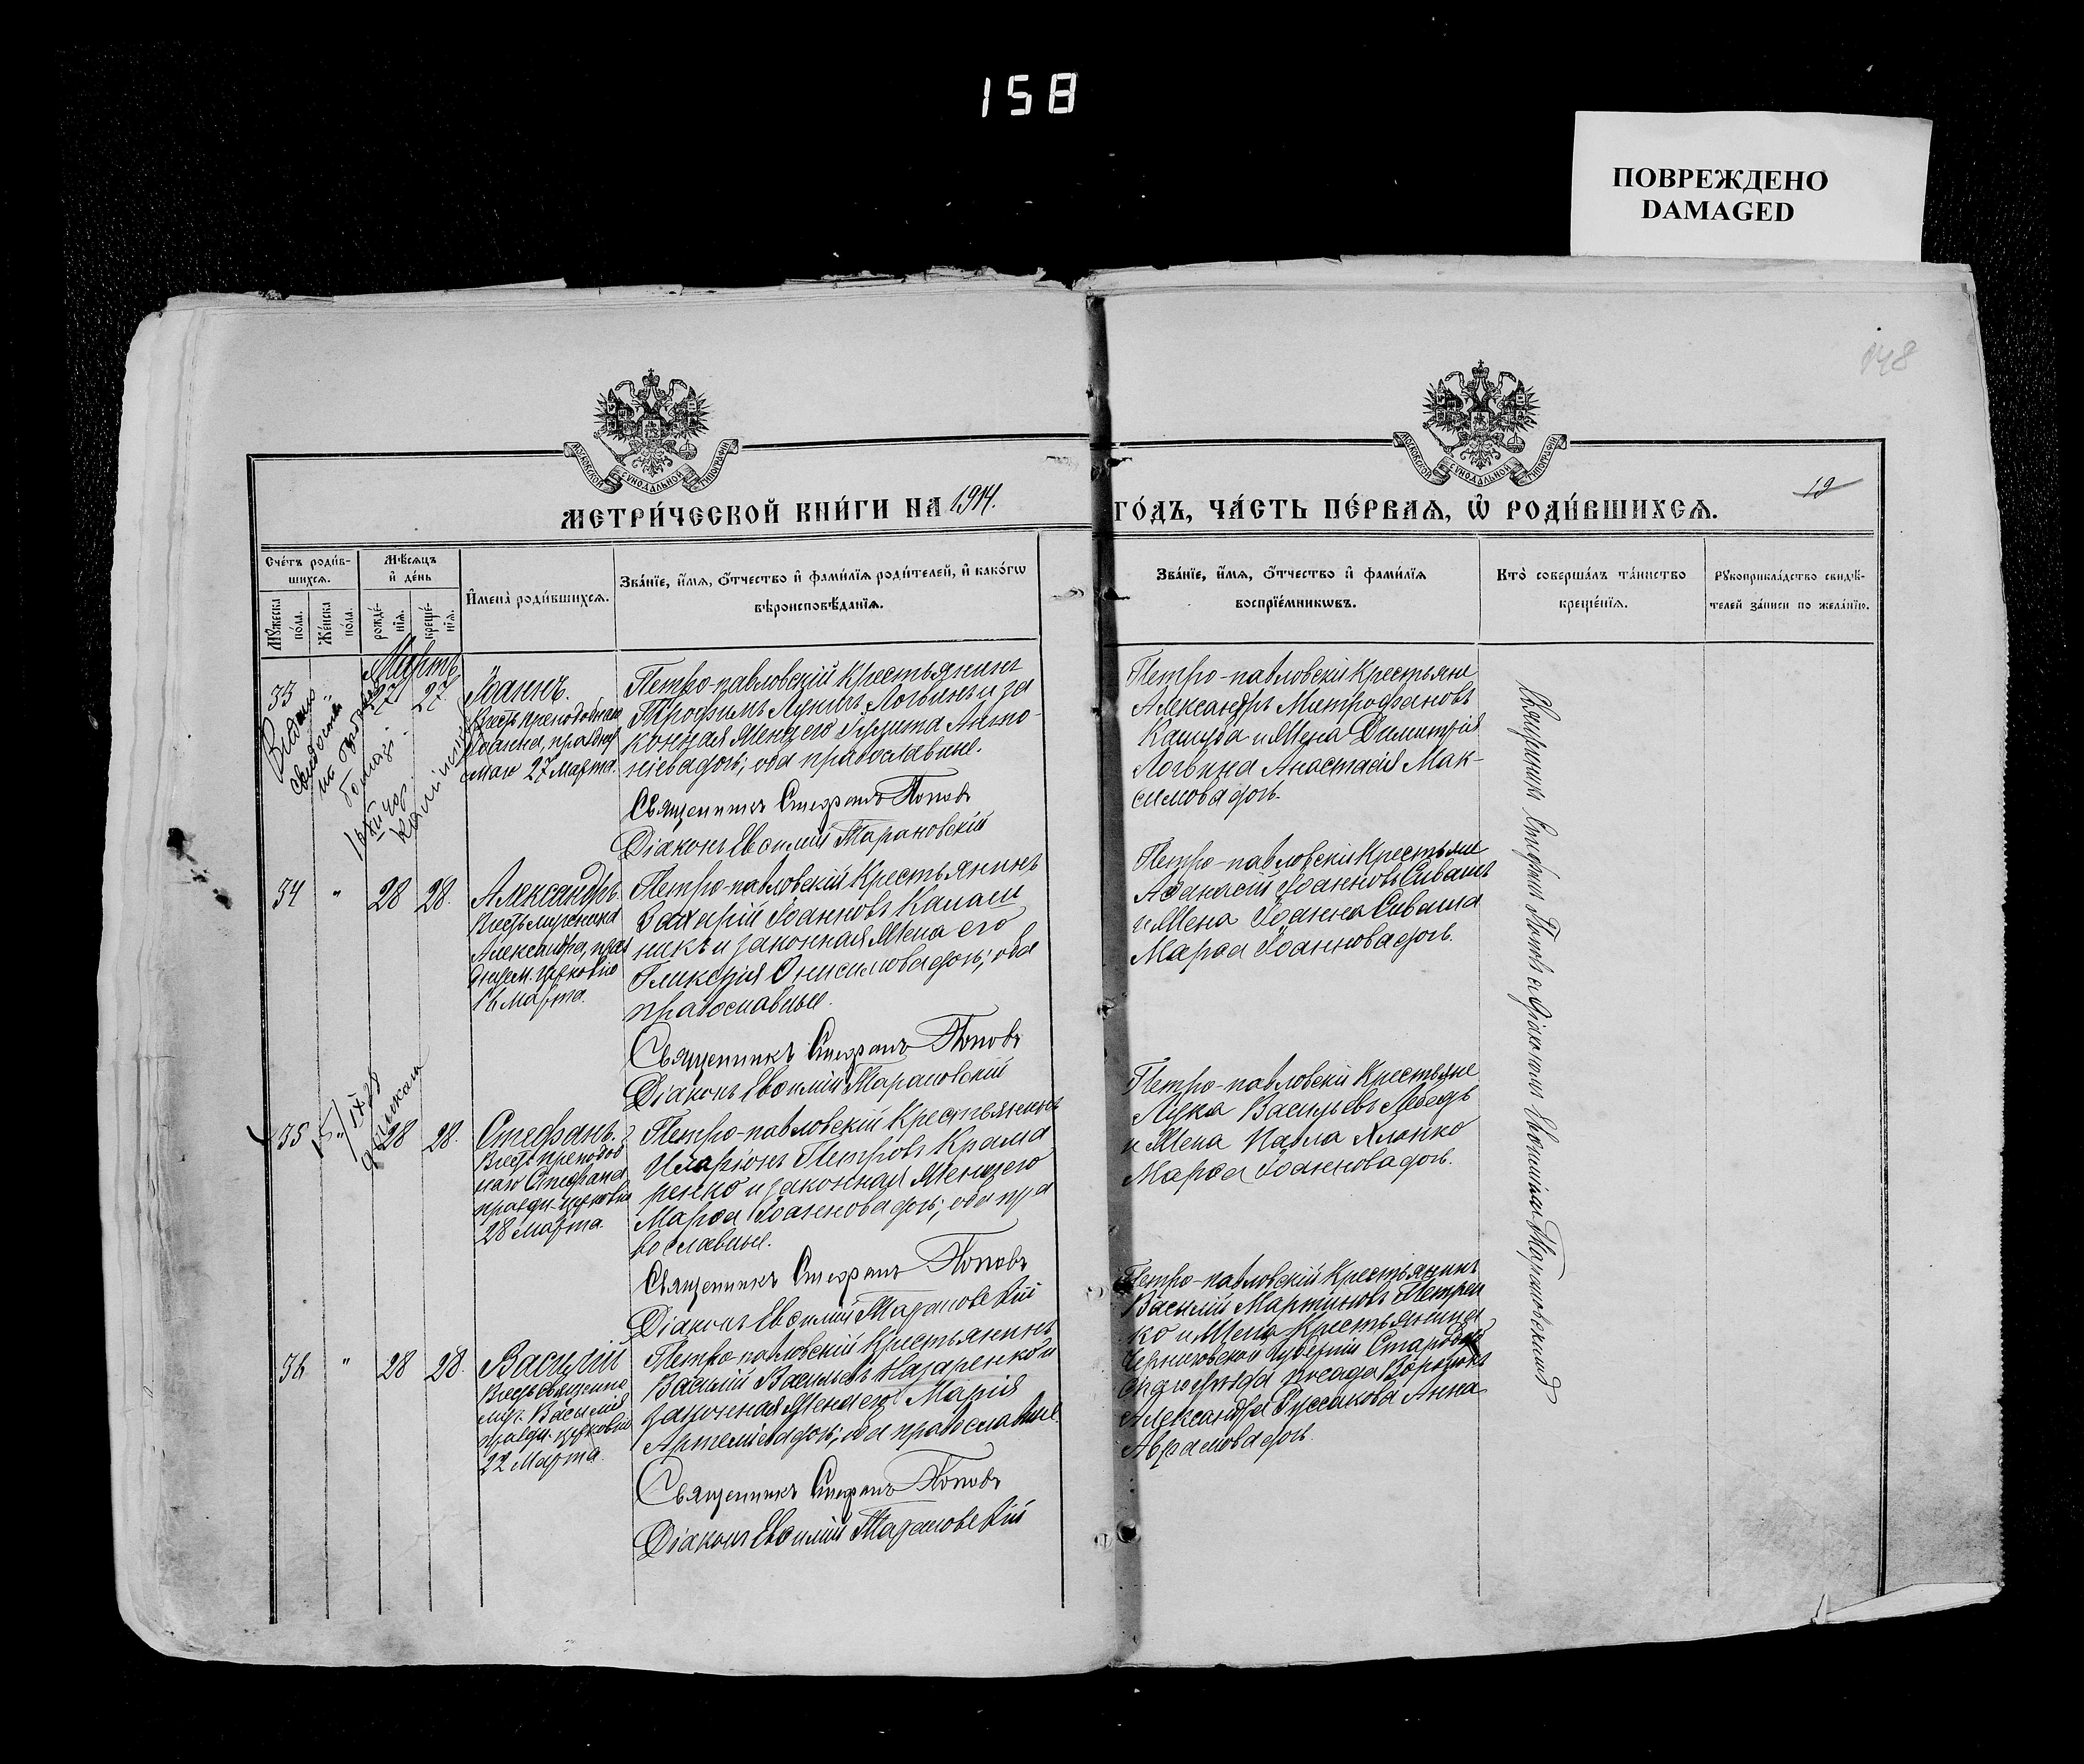 158
ПОВРЕЖДЕНО
DAMAGED
148
МОСКОВСКОЙ СѴНОДАЛЬНОЙ ТИПОГРАФІИ
МОСКОВСКОЙ СѴНОДАЛЬНОЙ ТИПОГРАФІИ
МЕТРИ́ЧЕСКОЙ КНИ́ГИ НА 1914. ГО́ДЪ, ЧА́СТЬ ПЕ́РВАЯ, Ѡ҆ РОДИ́ВШИХСЯ.
19
Сче́тъ роди́в-
шихся.
Мꙋжеска
по́ла.
Же́нска
по́ла.
Мѣ́сяцъ
и҆ де́нь
рожде́-
нїя.
креще́-
нїя.
И҆мена̀ роди́вшихся.
Зва́нїе, и҆́мя, ѻ҆́тчество и҆ фами́лїя роди́телей, и҆ како́гѡ
вѣроисповѣ́данїя.
Зва́нїе, и҆́мя, ѻ҆́тчество и҆ фами́лїя
воспрїе́мникѡвъ.
Кто̀ соверша́лъ та́инство
креще́нїя.
Рꙋкоприкла́дство свидѣ́-
телей за́писи по жела́нїю.
Мартъ
33 " 27 27
Іоаннъ.
Въ честь преподобнаго
Іоанна, праздну
емаго 27 Марта.
Петро-павловскій Крестьянинъ
Трофимъ Лукинъ Логвинъ и за
конная жена его Іулитта Анто-
ніева дочь; оба православные.
Священникъ Стефанъ Попов
Діаконъ Евѳимій Тарановскій
Петро-павловскіе Крестьяне
Александръ Митрофановъ
Кашуба и жена Димитрія
Логвина Анастасія Мак-
симова дочь.
Выдано
34 " 28 28.
Александръ.
Въ честь мученика
Александра, праз
днуем. церковію
16 Марта.
Петро-павловскій Крестьянинъ
Захарій Іоанновъ Калаш
никъ и законная жена его
Гликерія Онисимова дочь; оба
православные.
Священникъ Стефанъ Попов
Діаконъ Евѳимій Тарановскій
Петро-павловскіе Крестьяне
Аѳанасій Іоанновъ Сивашъ
и жена Іоанна Сиваша
Марѳа Іоаннова дочь.
35 " 28 28.
Стефанъ.
Въ честь преподоб
наго Стефана
праздн. церковію
28 Марта.
Петро-павловскій Крестьянинъ
Иларіонъ Петровъ Крама
ренко и законная жена его
Марѳа Іоаннова дочь; оба пра
вославные.
Священникъ Стефанъ Попов
Діаконъ Евѳимій Тарановскій
Петро-павловскіе Крестьяне
Лука Васильевъ Лебедь
и жена Павла
Марѳа Іоаннова дочь.
36 " 28 28.
Василій
Въ честь священно
муч. Василія
праздн. церковію
22 Марта.
Петро-павловскій Крестьянинъ
Василій Васильевъ Назаренко и
законная жена его Марія
Артеміева дочь; оба православные.
Священникъ Стефанъ Попов
Діаконъ Евѳимій Тарановскій
Петро-павловскій Крестьянинъ
Василій Мартиновъ Петрен
ко и жена Крестьянина
Черниговской губерніи Стародуб
скаго уѣзда посада Воронокъ
Александра Руссакова Анна
Аврамова дочь.
Священникъ Стефанъ Поповъ съ діакономъ Евѳиміемъ Тарановскимъ